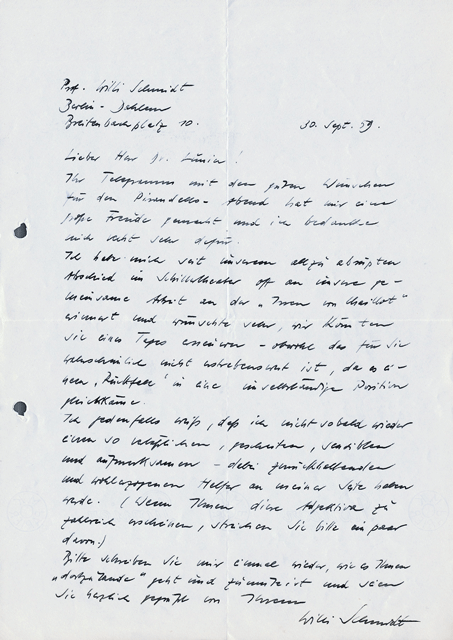 Prof. Willi Schmidt
Berlin-Dahlem
Breitenbachplatz 10.
30. Sept. 59.
Lieber Herr Dr. !
Ihr Telegramm mit den guten Wünschen
für den Pirandello-Abend hat mir eine
große Freude gemacht und ich bedanke
mich recht sehr dafür.
Ich habe mich seit unserem allzu abrupten
Abschied im Schillertheater oft an unsere ge-
meinsame Arbeit an der „Irren von Chaillot"
erinnert und wünschte sehr, wir könnten
sie eines Tages erneuern - obwohl das für Sie
wahrscheinlich nicht erstrebenswert ist, da es ei-
nem „Rückfall" in eine unselbständige Position
gleichkäme.
Ich jedenfalls weiß, daß ich nicht sobald wieder
einen so verläßlichen, gescheiten, sensiblen
und aufmerksamen - dabei zurückhaltenden
und wohlerzogenen Helfer an meiner Seite haben
werde. (Wenn Ihnen diese Adjektiva zu
zahlreich erscheinen, streichen Sie bitte ein paar
davon!)
Bitte schreiben Sie mir einmal wieder, wie es Ihnen
„dortzulande" geht und zumute ist und seien
Sie herzlich gegrüßt von Ihrem
Willi Schmidt